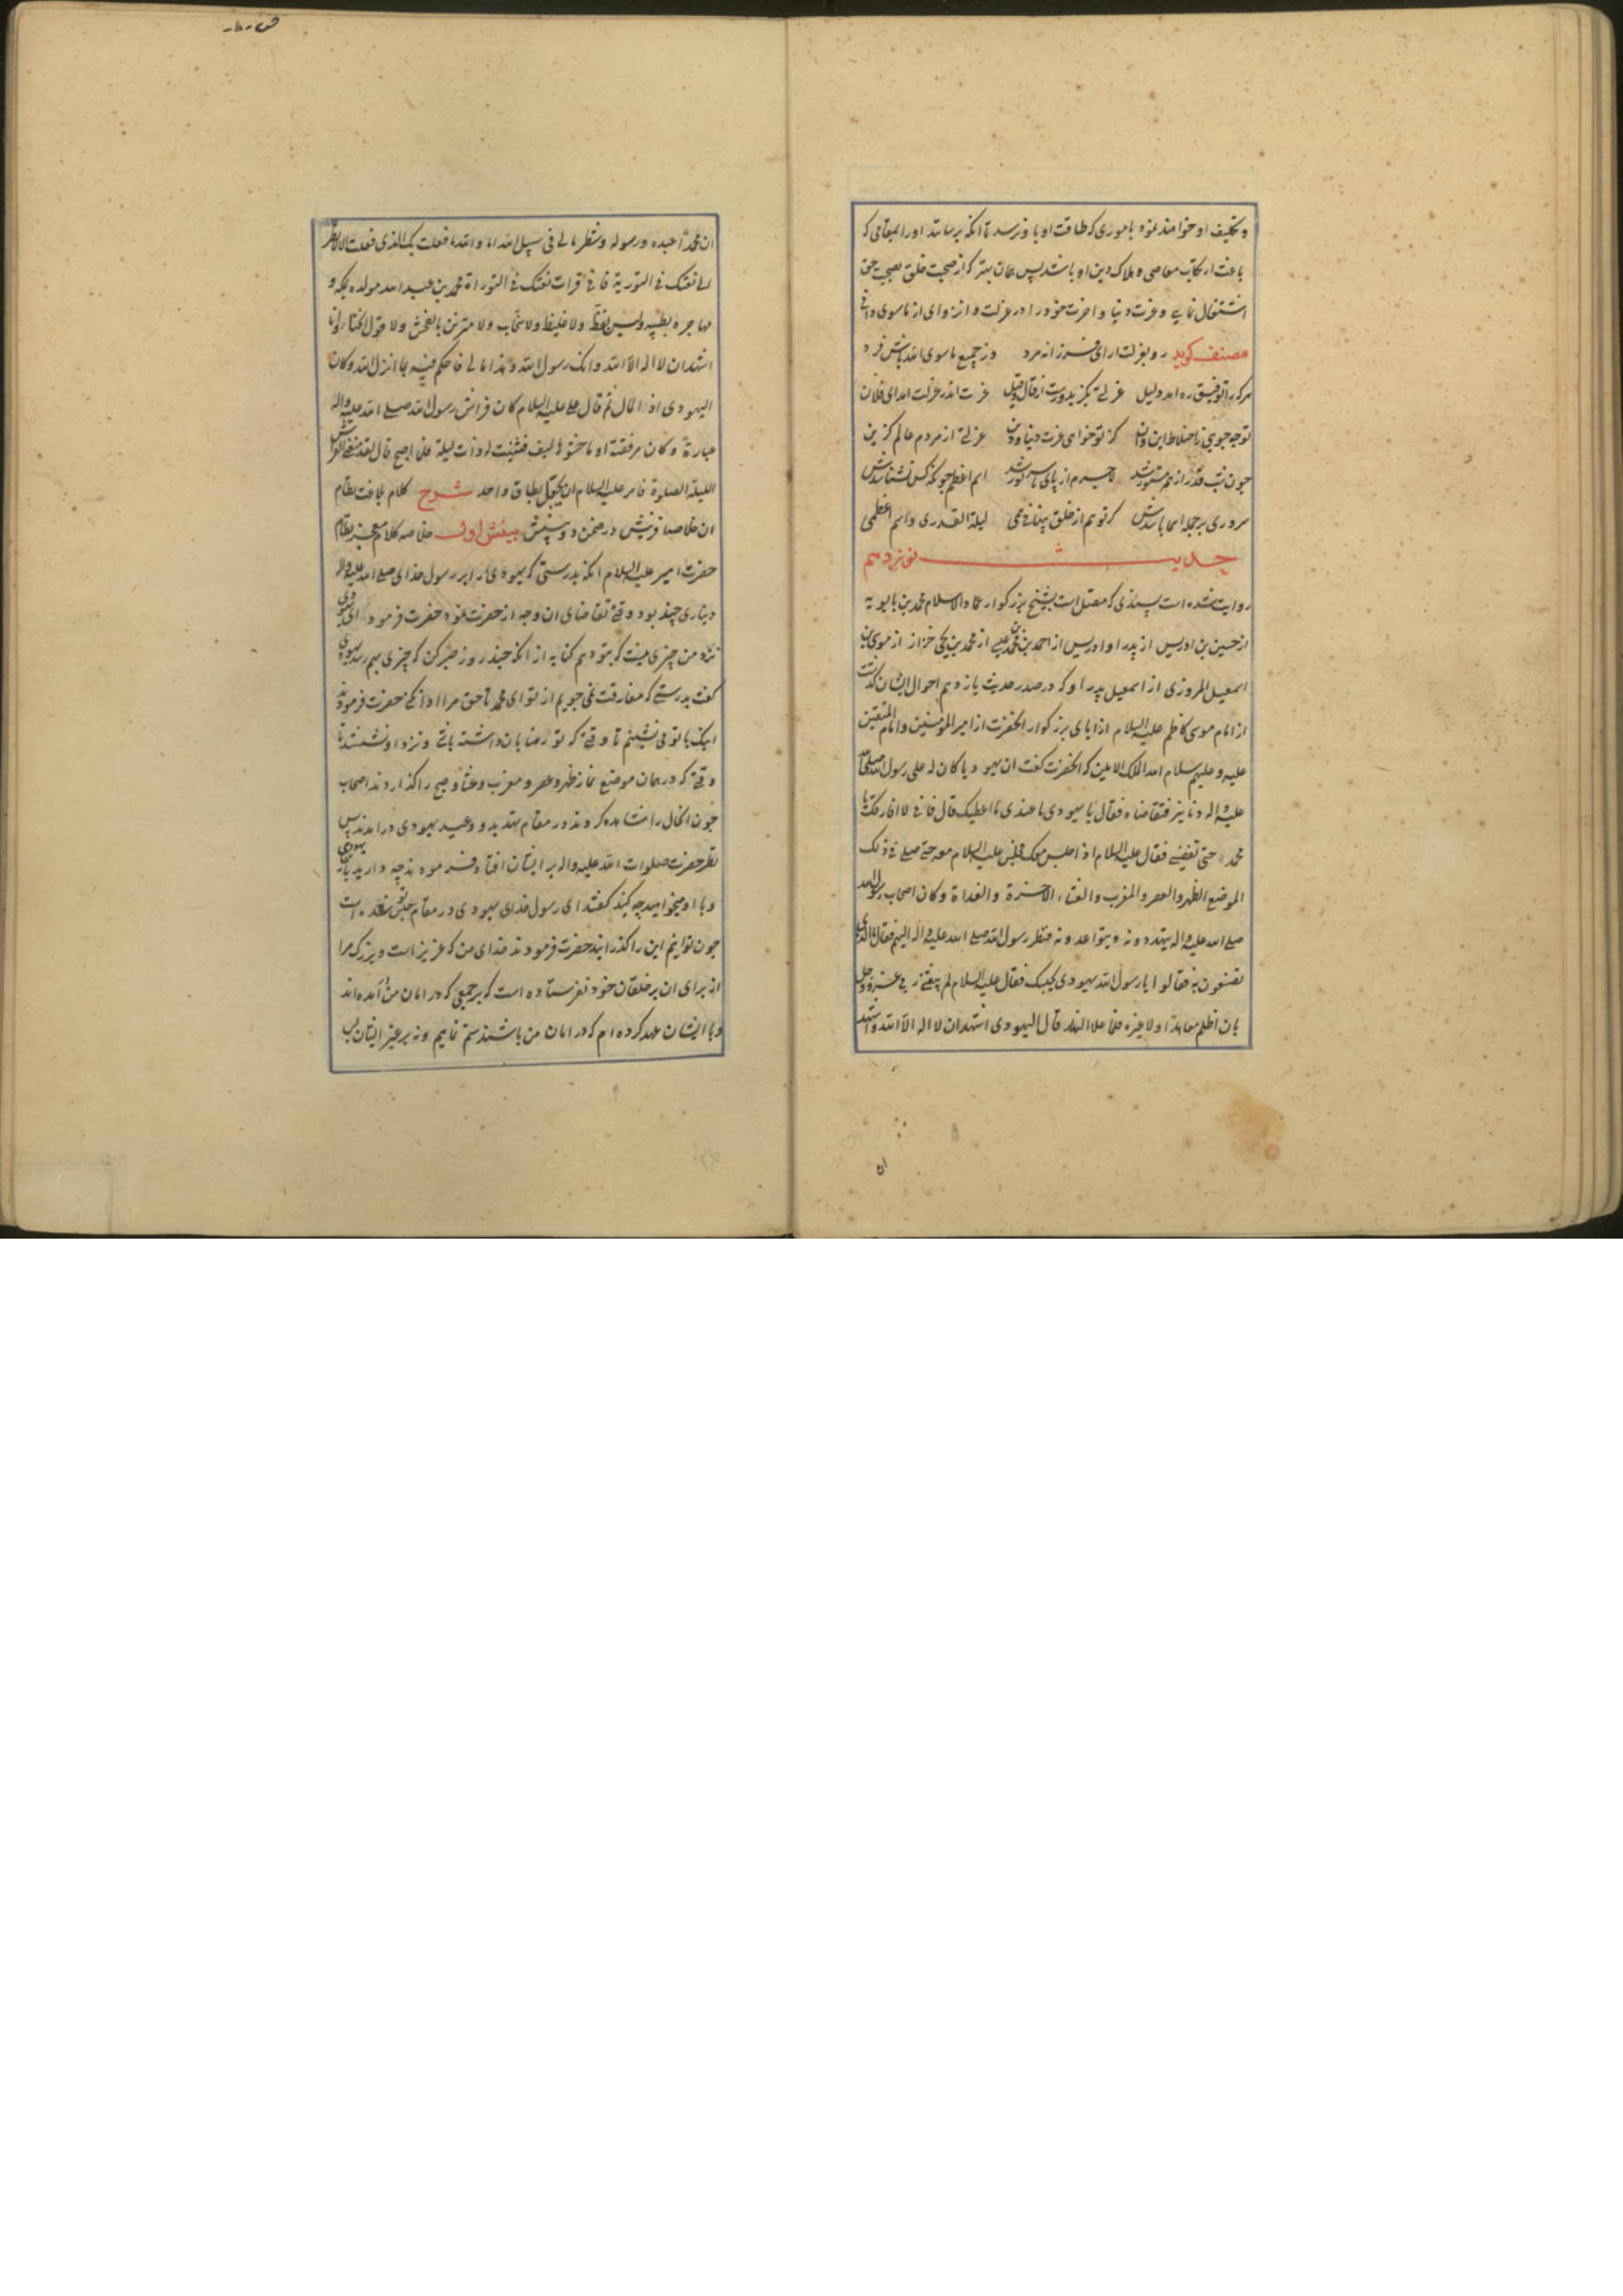 و تکلیف او خواهند نمود باموری که طاقت او باو نرسد تا انکه برسانند او را بمقامی که
باعث ارتکاب معاصی و هلاک دین او باشد پس همان بهتر که از صحبت خلق بصحبت حق
اشتغال نمایی و عزت دنیا و اخرت خود را در عزلت و انزوای از ماسوی دانی
مصنف کوید رو بعزلت ار ای فرزانه مرد وز جمیع ماسوی الله باش فرد
هرکه را توفیق ره امد دلیل عزلتی بکزید و رست از قال و قیل عزت اندر عزلت امد ای فلان
توچه جویی زاختلاط این و ان کر تو خواهی عزت دنیا و دین عزلتی از مردم عالم کزین
چون شب قدر از همه مستور شد لاجرم از پای تا سر نور شد اسم اعظم چونکه کس نشناسدش
سروری بر جمله اسما باشدش کر تو هم از خلق پنهانی همی لیلة القدری و اسم اعظمی
حدیث نوزدهم
روایت شده است بسندی که متصل است بشیخ بزرکوار عماد الاسلام محمد بن بابویه
از حسین بن ادریس از پدر او ادریس از احمد بن محمد بن عیسی از محمد بن یحیی خزاز از موسی بن
اسمعیل المروزی از اسمعیل پدر او که در صدر حدیث یازدهم احوال ایشان کذشت
از امام موسی کاظم علیه السلام از ابای بزرکوار انحضرت از امیر المؤمنین و امام المتقین
علیه و علیهم سلام الله الملک الامین که انحضرت کفت ان یهودیا کان له علی رسول الله صلی الله
علیه و اله دنانیر فتقاضاه فقال یا یهودی ما عندی ما اعطیک قال فانی لا افارقک یا
محمد حتی تقضینی فقال علیه السلام اذا اجلس معک فجلس علیه السلام معه حتی صلی فی ذلک
الموضع الظهر و العصر و المغرب و العشاء الاخرة و الغداة و کان اصحاب رسول الله
صلی الله علیه و اله یتهددونه و یتواعدونه فنظر رسول الله صلی الله علیه و اله الیهم فقال ما الذی
تصنعون به فقالوا یا رسول الله یهودی یحبسک فقال علیه السلام لم یبعثنی ربی عز و جل
بان اظلم معاهدا و لا غیره فلما علا النهار قال الیهودی اشهد ان لا اله الا الله و اشهد
ان
ان محمدا عبده و رسوله و شطر مالی فی سبیل الله اما و الله ما فعلت بک الذی فعلت الا لانظر
الی نعتک فی التوریة فانی قرات نعتک فی التوراة محمد بن عبد الله مولده بمکة و
مهاجره بطیبه و لیس بفظ و لا غلیظ و لا سخاب و لا متزین بالفحش و لا قول الخنا و انا
اشهد ان لا اله الا الله و انک رسول الله و هذا مالی فاحکم فیه بما انزل الله و کان
الیهودی کثیر المال ثم قال علی علیه السلام کان فراش رسول الله صلی الله علیه و اله
عباءة و کان مرفقته ادما حشوها لیف فثنیت له ذات لیلة فلما اصبح قال لقد منعنی الفراش
اللیلة الصلوة فامر علیه السلام ان یجعل بطاق واحد شرح کلام بلاغت نظام
ان خلاصه افرینش در ضمن دو بینش بینش اول خلاصه کلام معجز نظام
حضرت امیر علیه السلام انکه بدرستی که یهودی را بر رسول خدای صلی الله علیه و اله
دیناری چند بود وقتی تقاضای ان وجه از حضرت نمود حضرت فرمود ای یهودی
نزد من چیزی نیست که بتو دهم کنایه از انکه چند روز صبر کن که چیزی بهم رسد یهودی
کفت بدرستی که مفارقت نمی جویم از تو ای محمد تا حق مرا ادا نکنی حضرت فرمودند
اینک با تو می نشینم تا وقتی که تو رضا بان داشته باشی و نزد او نشستند تا
وقتی که در همان موضع نماز ظهر و عصر و مغرب و عشا و صبح را کذاردند اصحاب
چون انحال را مشاهده کردند در مقام تهدید و وعید یهودی درامدند پس
نظر حضرت صلوات الله علیه و اله بر ایشان افتاد فرمودند چه دارید با یهودی
و با او میخواهید چه کنید کفتند ای رسول خدای یهودی در مقام حبس تو شده است
چون توانیم این را کذرانید حضرت فرمودند خدای من که عزیز است و بزرک مرا
از برای ان بر خلقان خود نفرستاده است که بر جمعی که در امان من آمده اند
و با ایشان عهد کرده ام که در امان من باشند ستم نمایم و نه بر غیر ایشان پس